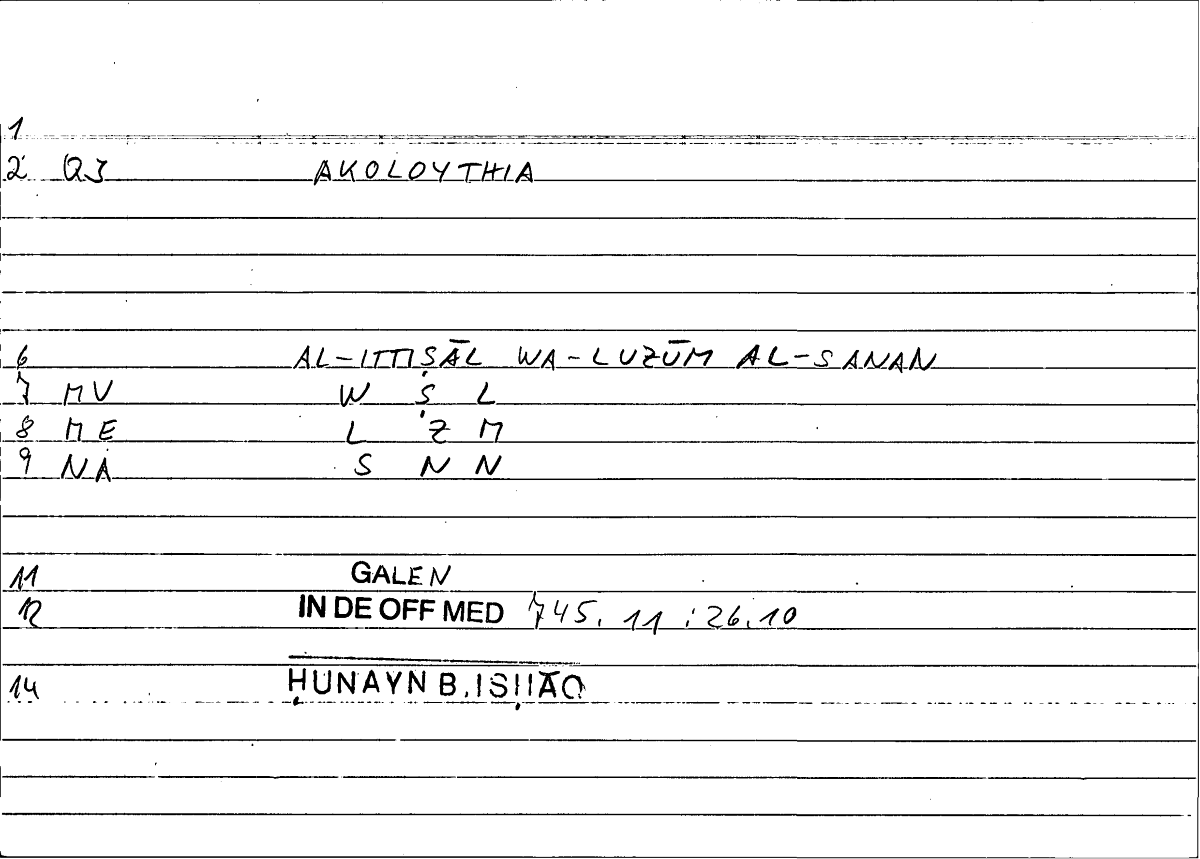 1
2 QJ AKOLOYTHIA
6 AL-ITTIṢĀL WA-LUZŪM AL-SANAN
7 MV W Ṣ L
8 ME L Z M
9 NA S N N
11 GALEN
12 IN DE OFF MED 745. 11 : 26.10
14 ḤUNAYN B. ISḤĀQ